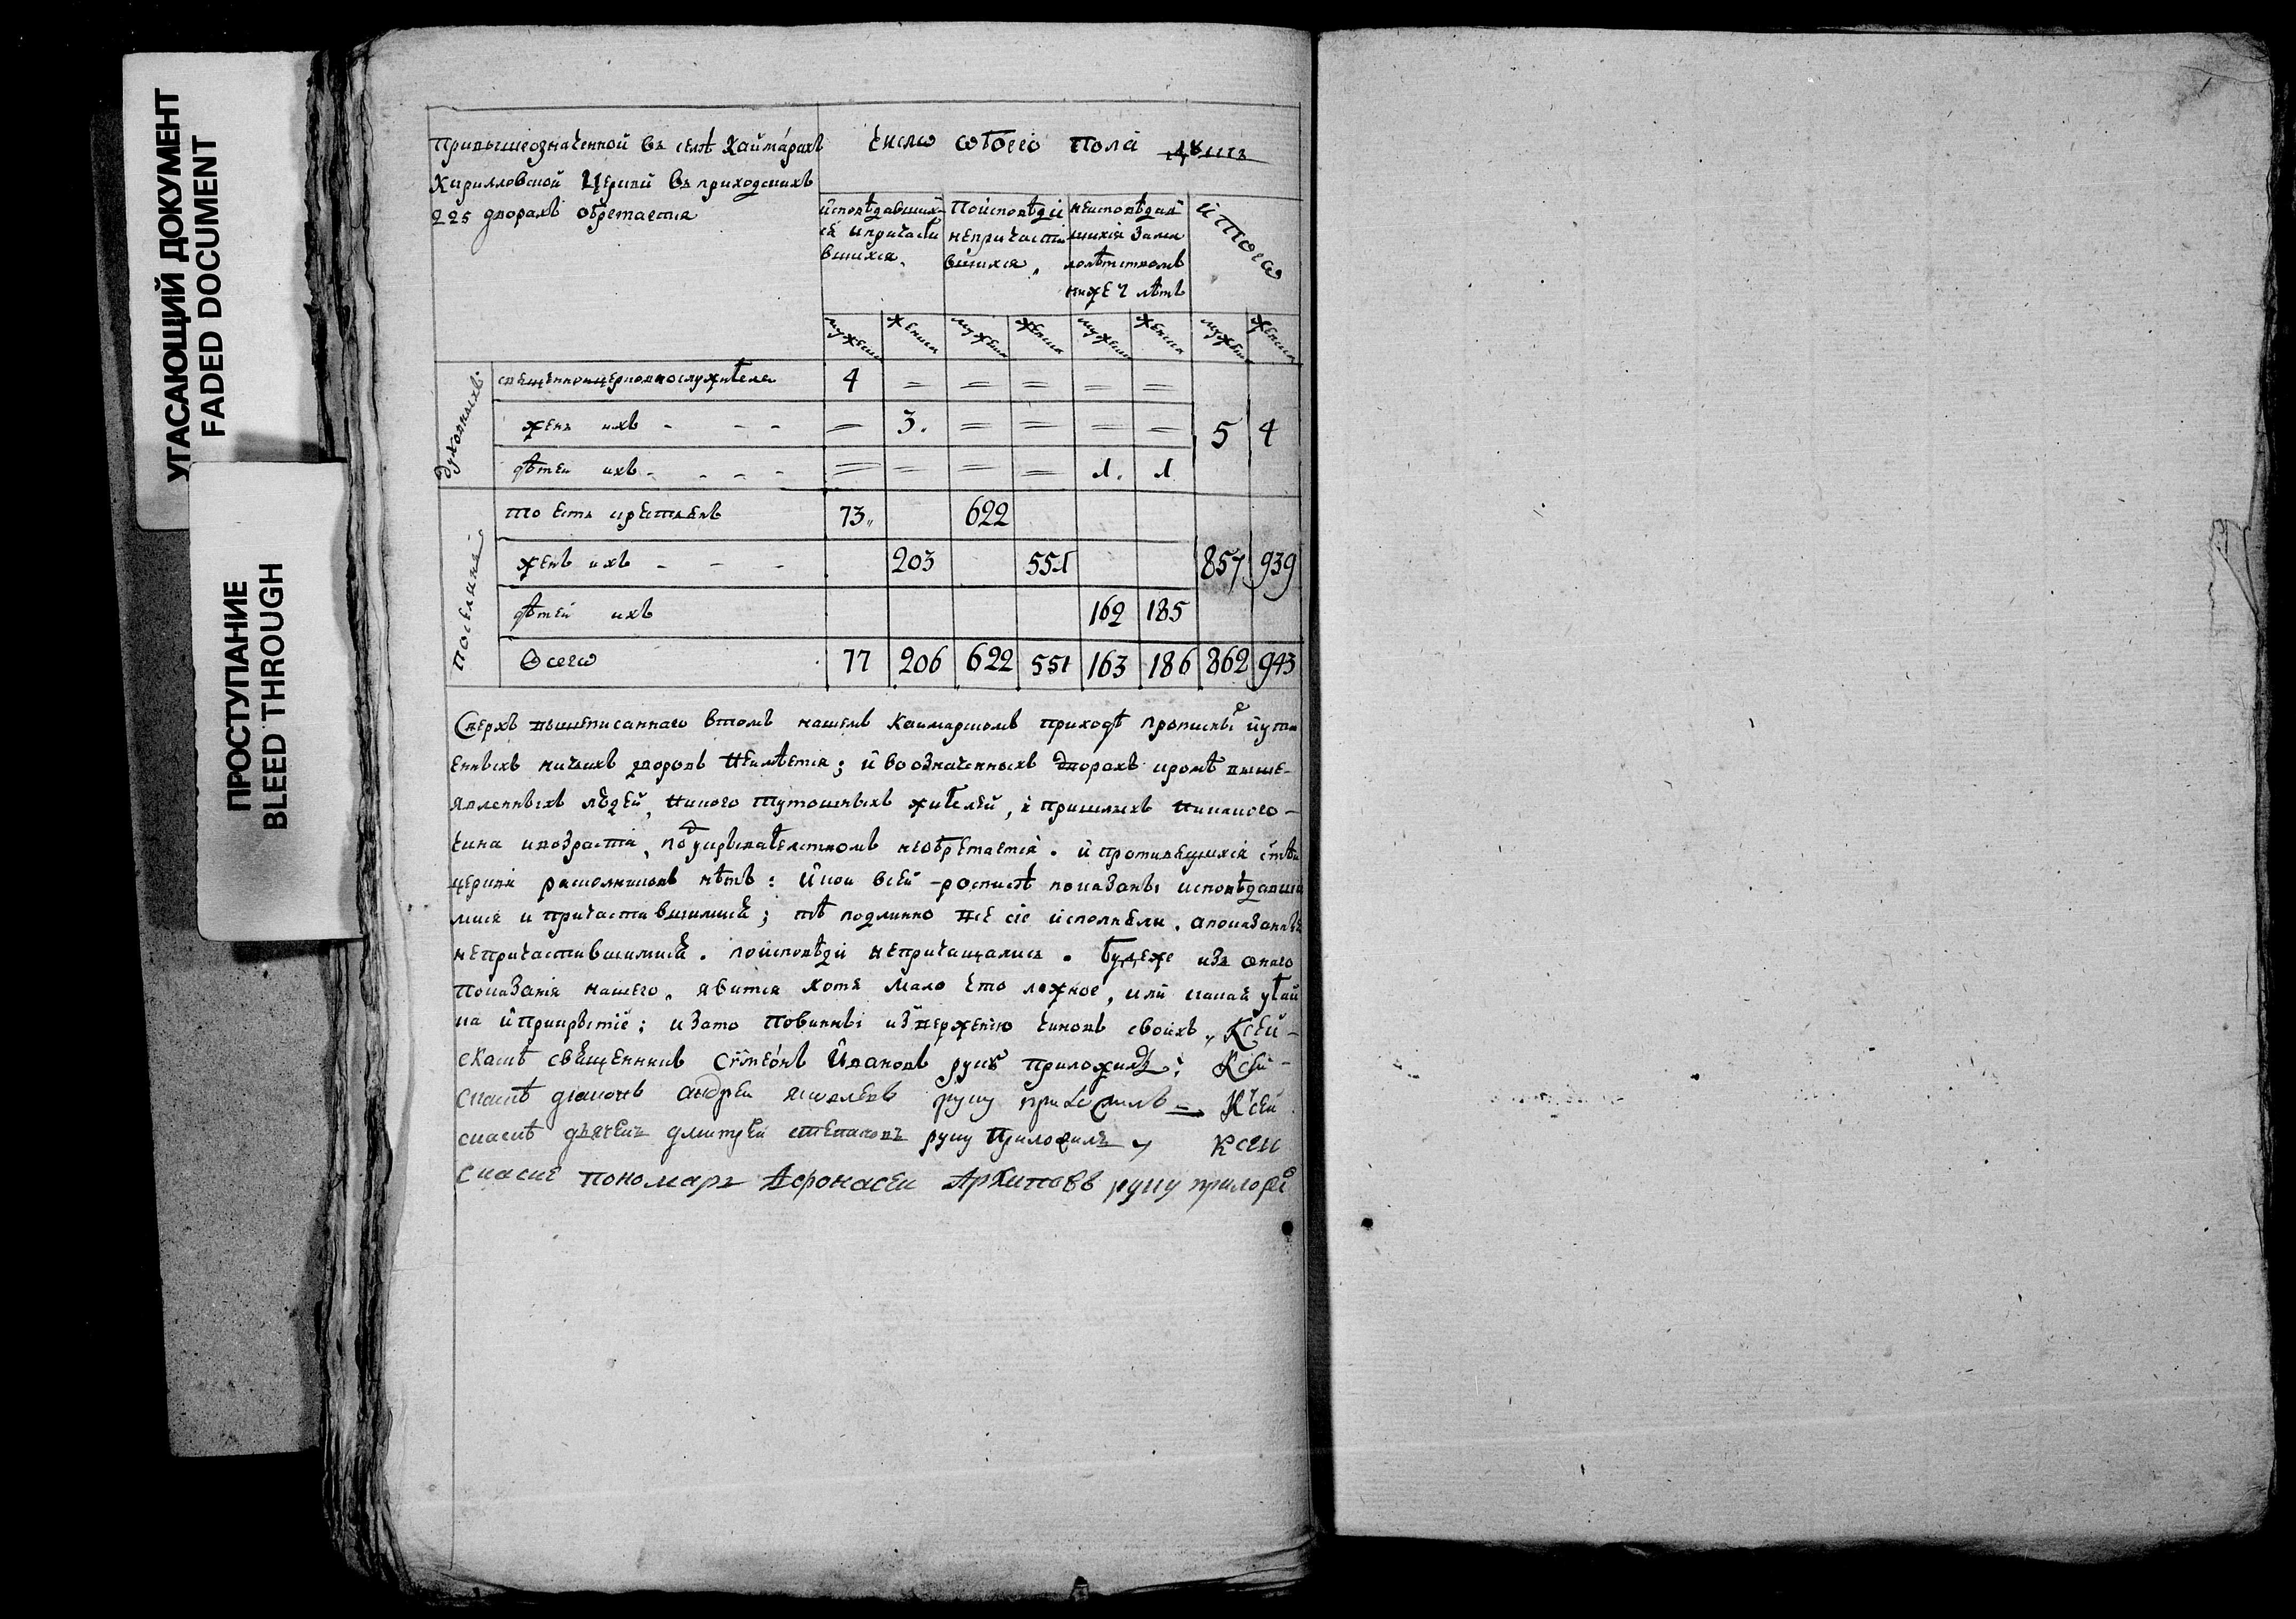 УГАСАЮЩИЙ ДОКУМЕНТ
FADED DOCUMENT
ПРОСТУПАНИЕ
BLEED THROUGH
При вышеозначенной въ селѣ Каймáрахъ
Кирилловской Церкви въ приходскихъ
225 дворахъ обретается
число обоего пола душъ
исповѣдавших-
ся и причасти
вшихся.
По исповѣди
непричасти
вшихся.
неисповѣдав
шихся за мал
лолѣтствомъ
ниже 7 лѣтъ
итого
мужеска женска мужеска женска мужеска женска мужеска женска
духовныхъ.
священноцерковнослужителеи 4 = = = = =
женъ ихъ - - - = 3. = = = = 5 4
дѣтеи ихъ - - - - = = = = 1. 1
поселянъ
то есть крестьянъ 73,, 622
женъ ихъ - - - 203 551 857 939
дѣтей ихъ 162 185
Всего 77 206 622 551 163 186 862 943
Сверхъ вышеписаннаго в томъ нашемъ Каймарскомъ приходѣ прописны й ута
енныхъ ничиихъ дворовъ неимѣется; и во означенныхъ дворахъ кромѣ выше-
явленныхъ людей, никого тутошныхъ жителей, і пришлыхъ никакого-
чина и возраста, под укрывателством необретается. и противящихся стѣи
церкви расколниковъ нѣтъ: и кои в сей росписѣ показаны исповѣдавши
мися и причастившимися; тѣ подлинно все сіе исполнили. а показанны
непричастившимися. по исповѣди непричащались. Буде же изъ онаго
показанія нашего. явится хотя мало что ложное, или какая утай
ка и прикрытіе; и за то повинны изверженію чиновъ своихъ,, К сей-
скаскѣ священникъ Сѵмеóнъ Ивановъ руку приложилъ; К сей-
скаскѣ диаконъ андреи яковлевъ руку приложилъ = К сеи
скаскѣ дьячекъ дмитреи степановъ руку приложилъ К сеи
скаске пономарь Афонасеи Архиповъ руку приложи